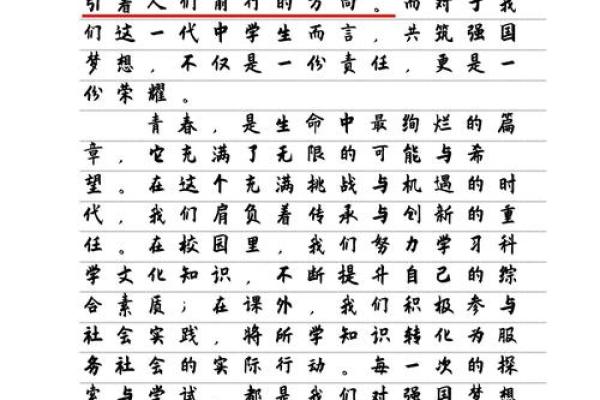 引着人们前行的方向。而对于我
们这一代中学生而言，共筑强国
梦想，不仅是一份责任，更是一
份荣耀。
青春，是生命中最绚烂的篇
章，它充满了无限的可能与希
望。在这个充满挑战与机遇的时
代，我们肩负着传承与创新的重
任。在校园里，我们努力学习科
学文化知识，不断提升自己的综
合素质；在课外，我们积极参与
社会实践，将所学知识转化为服
务社会的实际行动。每一次的探
索与尝试，都是我们对强国梦想